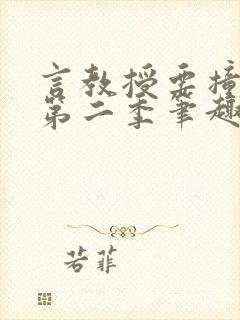 言教授要撞
第二季笔趣
若菲